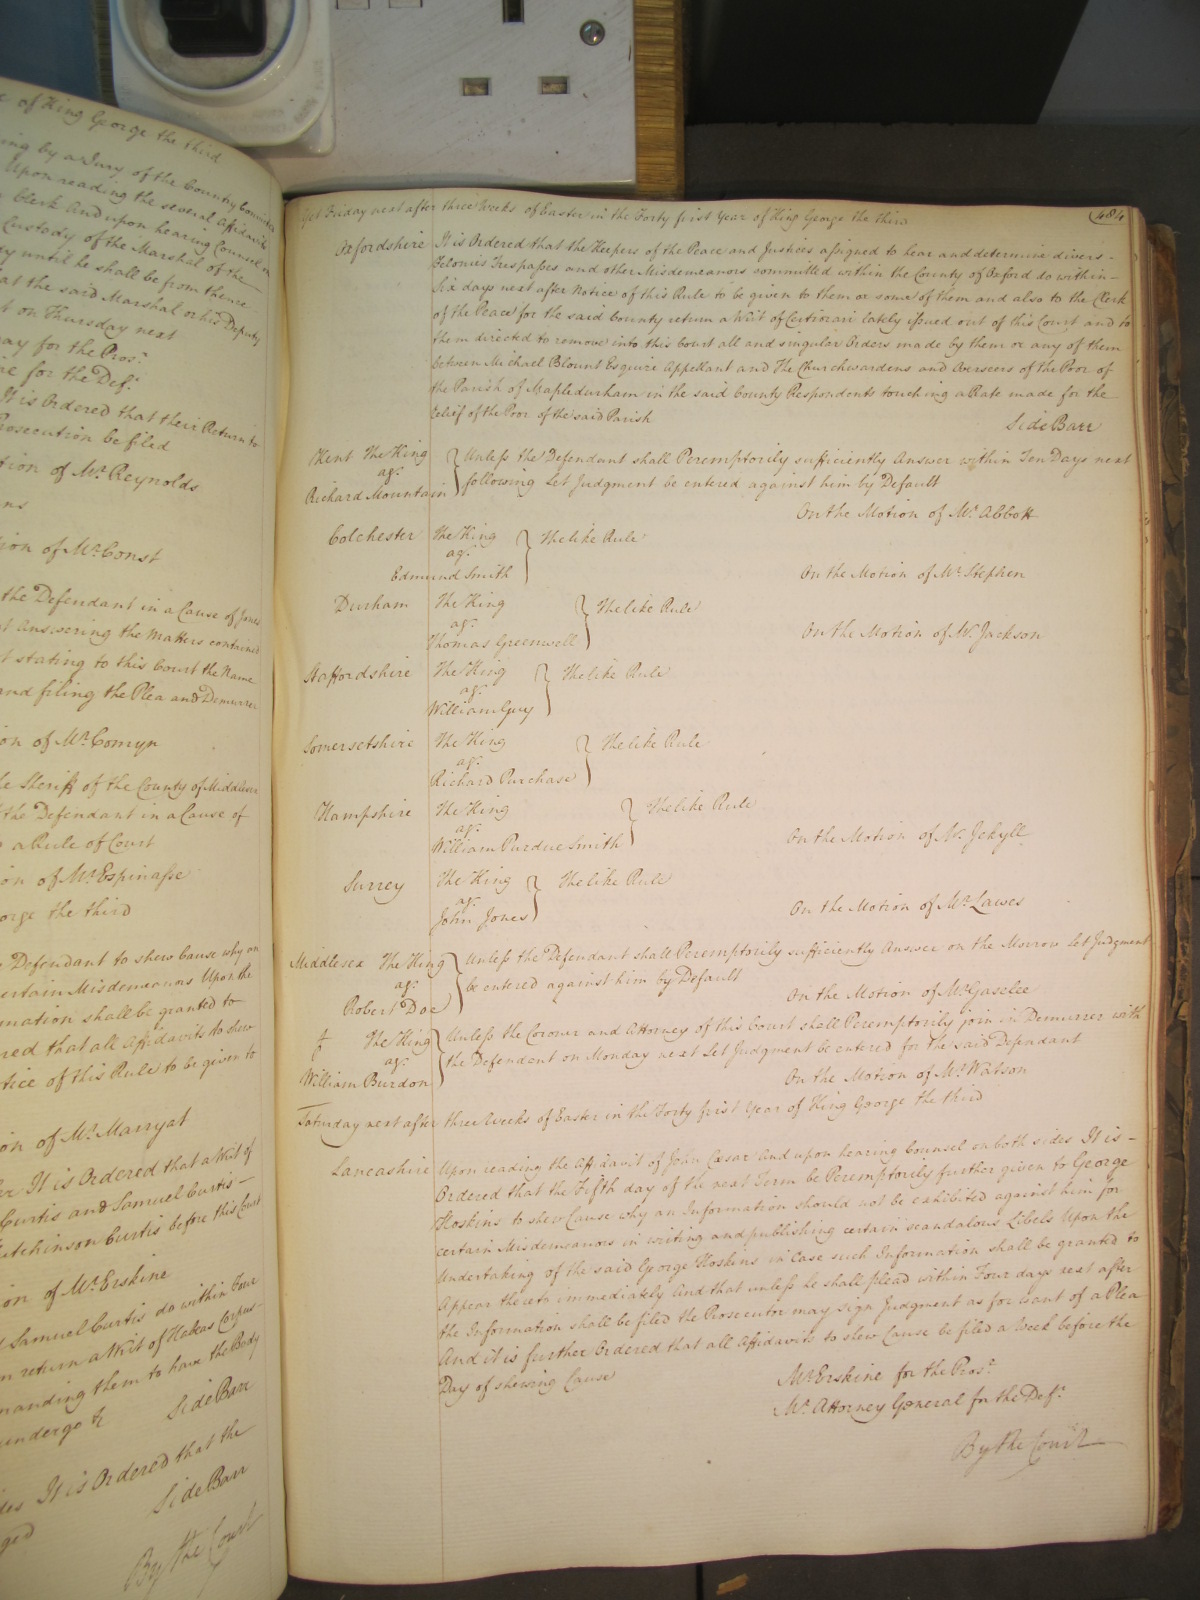 e of King George the third
ing by a Jury of the County
Upon reading the several Affidavits
Clerk And upon hearing Counsel
Custody of the Marshal of the
until he shall be from thence
at the said Marshal or his Deputy
t on Thursday next
ay for the Pros:r
for the Def:t
It is Ordered that their Return to
rosecution be filed
tion of Mr. Reynolds
ns
ion of Mr. Const
the Defendant in a Cause of Jones
t answering the Matters contained
t stating to this Court the Name
and filing the Plea and Demurrer
on of Mr. Comyn
Sheriff of the County of Middlesex
the Defendant in a Cause of
a Rule of Court
on of Mr. Espinasse
orge the third
Defendant to shew Cause why an
ertain Misdemeanors Upon the
mation shall be granted to
red that all Affidavits to shew
tice of this Rule to be given to
on of Mr. Marryat
It is Ordered that a Writ of
Curtis and Samuel Curtis
utchinson Curtis before this Court
on of Mr. Erskine
Samuel Curtis do within Four
n return a Writ of Habeas Corpus
manding them to have the Body
undergo &c
Side Barr
It is Ordered that the
Side Barr
ged
By the Court
Yet Friday next after three Weeks of Easter in the Forty first Year of King George the third
484
Oxfordshire It is Ordered that the Keepers of the Peace and Justices assigned to hear and determine divers
Felonies Trespasses and other Misdemeanors committed within the County of Oxford do within
Six days next after Notice of this Rule to be given to them or some of them and also to the Clerk
of the Peace for the said County return a Writ of Certiorari lately issued out of this Court and to
them directed to remove into this Court all and singular Orders made by them or any of them
between Michael Blount Esquire Appellant and The Churchwardens and Overseers of the Poor of
the Parish of Mapledurham in the said County Respondents touching a Rate made for the
relief of the Poor of the said Parish
Side Barr
Kent The King
agt.
Richard Mountain
Unless the Defendant shall Peremptorily sufficiently Answer within Ten Days next
following Let Judgment be entered against him by Default
On the Motion of Mr. Abbott
Colchester The King
agt.
Edmund Smith
The like Rule
On the Motion of Mr. Stephen
Durham The King
agt.
Thomas Greenwell
The like Rule
On the Motion of Mr. Jackson
Staffordshire The King
agt.
William Guy
The like Rule
Somersetshire The King
agt.
Richard Purchase
The like Rule
Hampshire The King
agt.
William Purdue Smith
The like Rule
On the Motion of Mr. Jekyll
Surrey The King
agt.
John Jones
The like Rule
On the Motion of Mr. Lawes
Middlesex The King
agt.
Robert Doe
Unless the Defendant shall Peremptorily sufficiently Answer on the Morrow Let Judgment
be entered against him by Default
On the Motion of Mr. Gaselee
The King
agt.
William Burdon
Unless the Coroner and Attorney of this Court shall Peremptorily join in Demurrer with
the Defendant on Monday next Let Judgment be entered for the said Defendant
On the Motion of Mr. Watson
Saturday next after three Weeks of Easter in the Forty first Year of King George the third
Lancashire Upon reading the Affidavit of John Cæsar And upon hearing Counsel on both sides It is
Ordered that the Fifth day of the next Term be Peremptorily further given to George
Hoskins to shew Cause why an Information should not be exhibited against him for
certain Misdemeanors in writing and publishing certain scandalous Libels Upon the
Undertaking of the said George Hoskins in Case such Information shall be granted to
Appear thereto immediately And that unless he shall plead within Four days next after
the Information shall be filed the Prosecutor may sign Judgment as for want of a Plea
And it is further Ordered that all Affidavits to shew Cause be filed a Week before the
Day of shewing Cause
Mr. Erskine for the Pros:r
Mr. Attorney General for the Def:t
By the Court